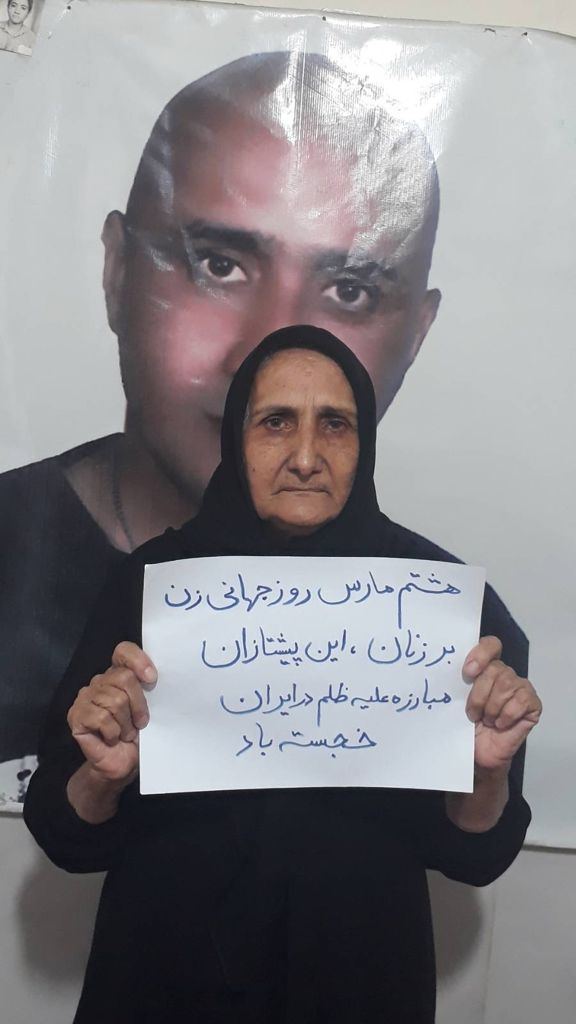 هشتم مارس روز جهانی زن
بر زنان ، این پیشتازان
مبارزه علیه ظلم در ایران
خجسته باد